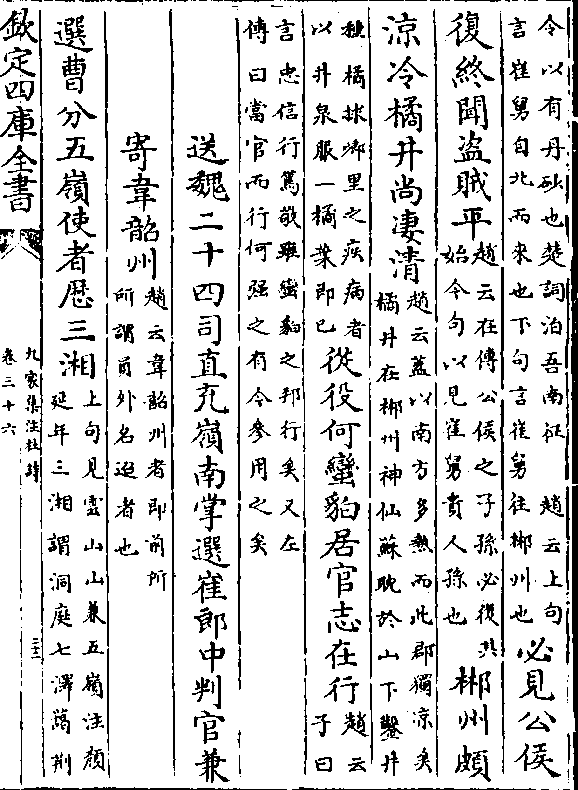 令以有丹砂也楚詞泊吾南征 趙云上句
言崔舅自北而來也下句言崔舅往郴州也
必見公侯
復終聞盜賊平
趙云在傳公侯之子孫必復其
始今句以見崔舅貴人孫也
郴州頗
涼冷橘井尚淒清
趙云蓋以南方多熱而此郡獨涼矣
橘井在郴州神仙蘇耽於山下鑿井
種橘捄鄉里之疾病者
以井泉服一橘葉即已
從役何蠻貊居官志在行
趙云
子曰
言忠信行篤敬雖蠻貊之邦行矣又左
傳曰當官而行何强之有今參用之矣
送魏二十四司直充嶺南掌選崔郎中判官兼
寄韋韶州
趙云韋韶州者即前所
所謂員外名迢者也
選曹分五嶺使者歷三湘
上句見雲山山兼五嶺注顏
延年三湘謂洞庭七澤藹荆
欽定四庫全書
九家集注杜詩
卷三十六